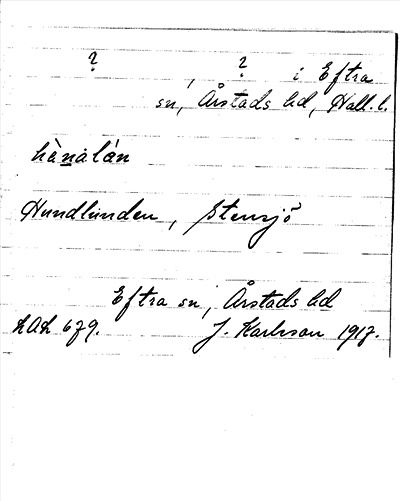 ? ? i Eftra
sn, Årstads hd, Hall. l.
hànalán
Hundlunden, Stensjö
Eftra sn, Årstads hd
679. J. Karlsson 1917.